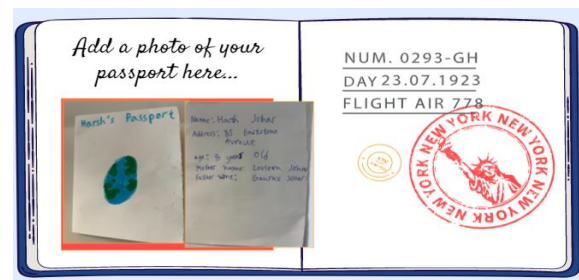 Add a photo of your
passport here...
Harsh's Passport
Name: Harsh Johar
Address: 35
Avenue
age: 5 years old
Mother name: Johar
Father name: Gaurav Johar
NUM. 0293-GH
DAY 23.07.1923
FLIGHT AIR 778
NEW YORK NEW YORK NEW YORK NEW YORK